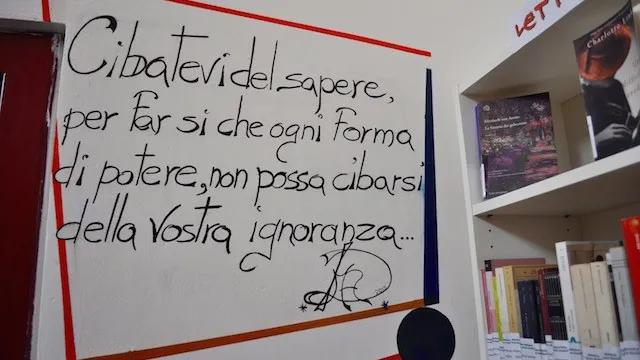 Cibatevi del sapere,
per far si che ogni forma
di potere, non possa cibarsi
della vostra ignoranza...
LETT
Charlotte